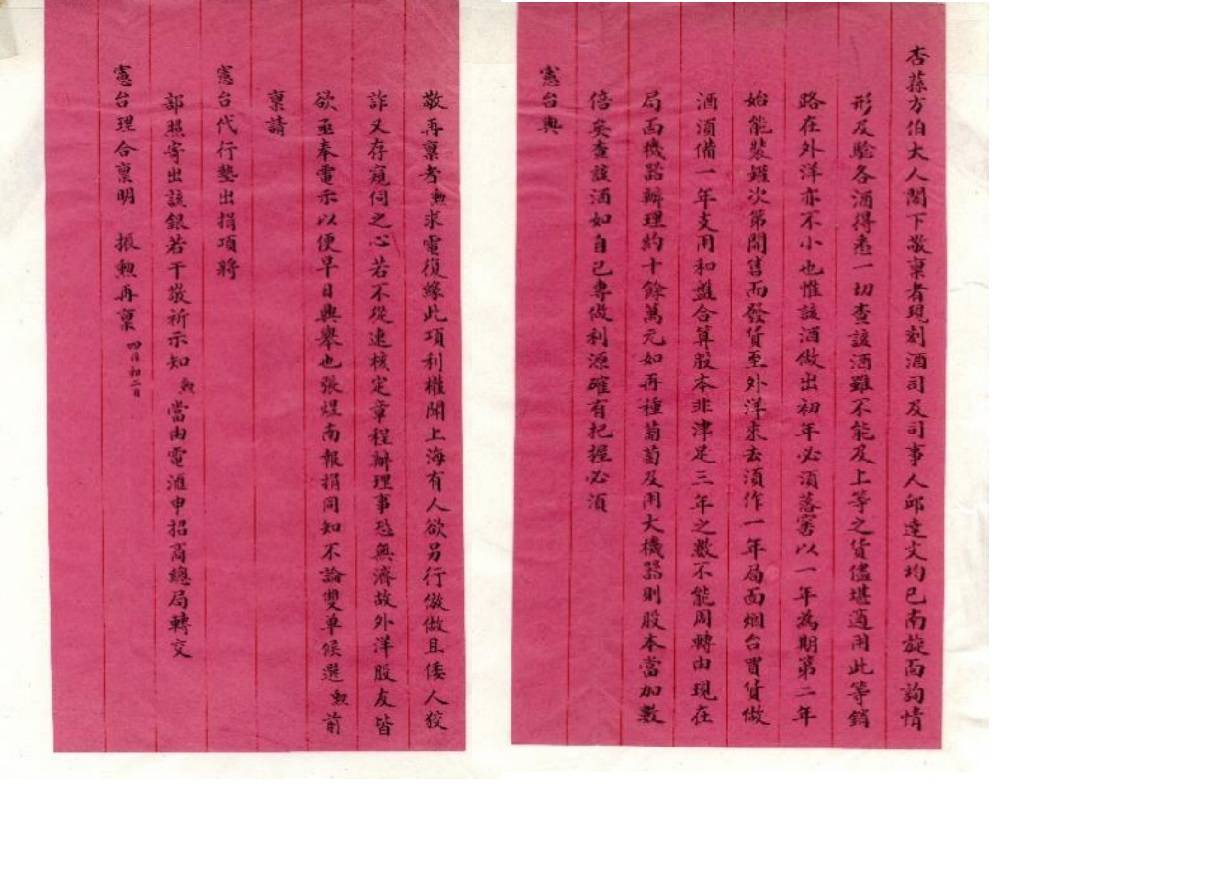 杏蓀方伯大人閣下敬稟者現刻酒司及司事人邱達文均已南旋面詢情
形及驗各酒得悉一切查該酒雖不能及上等之貨儘堪適用此等銷
路在外洋亦不小也惟該酒做出初年必須落窖以一年為期第二年
始能裝罐次第開售而發貨至外洋來去須作一年局面烟台買貨做
酒須備一年支用和盤合算股本非津足三年之數不能周轉由現在
局面機器辦理約十餘萬元如再種葡萄及用大機器則股本當加數
倍矣查該酒如自己專做利源確有把握必須
憲台與
敬再稟者勲求電復緣此項利權聞上海有人欲另行倣做且倭人狡
詐又存窺伺之心若不從速核定章程辦理事恐無濟故外洋股友皆
欲亟奉電示以便早日興舉也張煜南報捐同知不論雙單候選勲前
稟請
憲台代行墊出捐項將
部照寄出該銀若干敬祈示知勲當由電滙申招商總局轉交
憲台理合稟明 振勲再稟 四月初二日